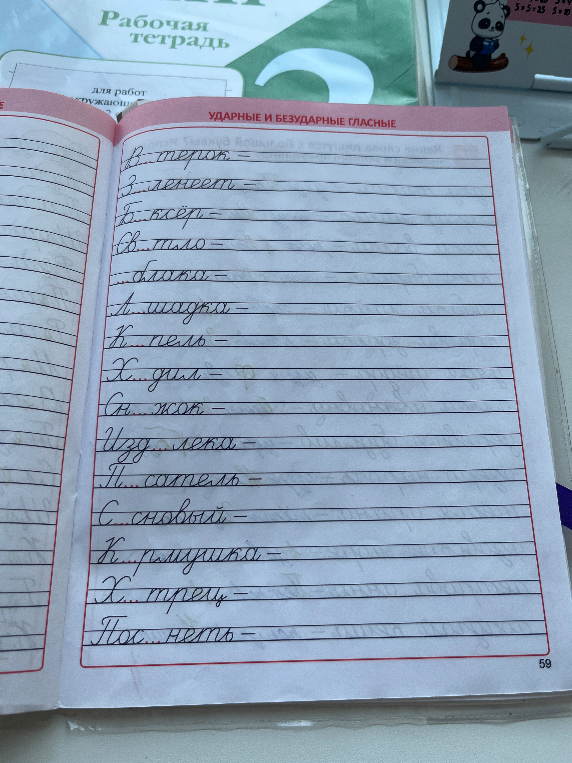 Рабочая
тетрадь
для работ
УДАРНЫЕ И БЕЗУДАРНЫЕ ГЛАСНЫЕ
В...терок –
З...ленеет –
Б...ксёр –
Св...тло –
...блака –
Л...шадка –
К...пель –
Х...дил –
Сн...жок –
Изд...лека –
П...сатель –
С...сновый –
К...рмушка –
Х...трец –
Пос...неть –
59